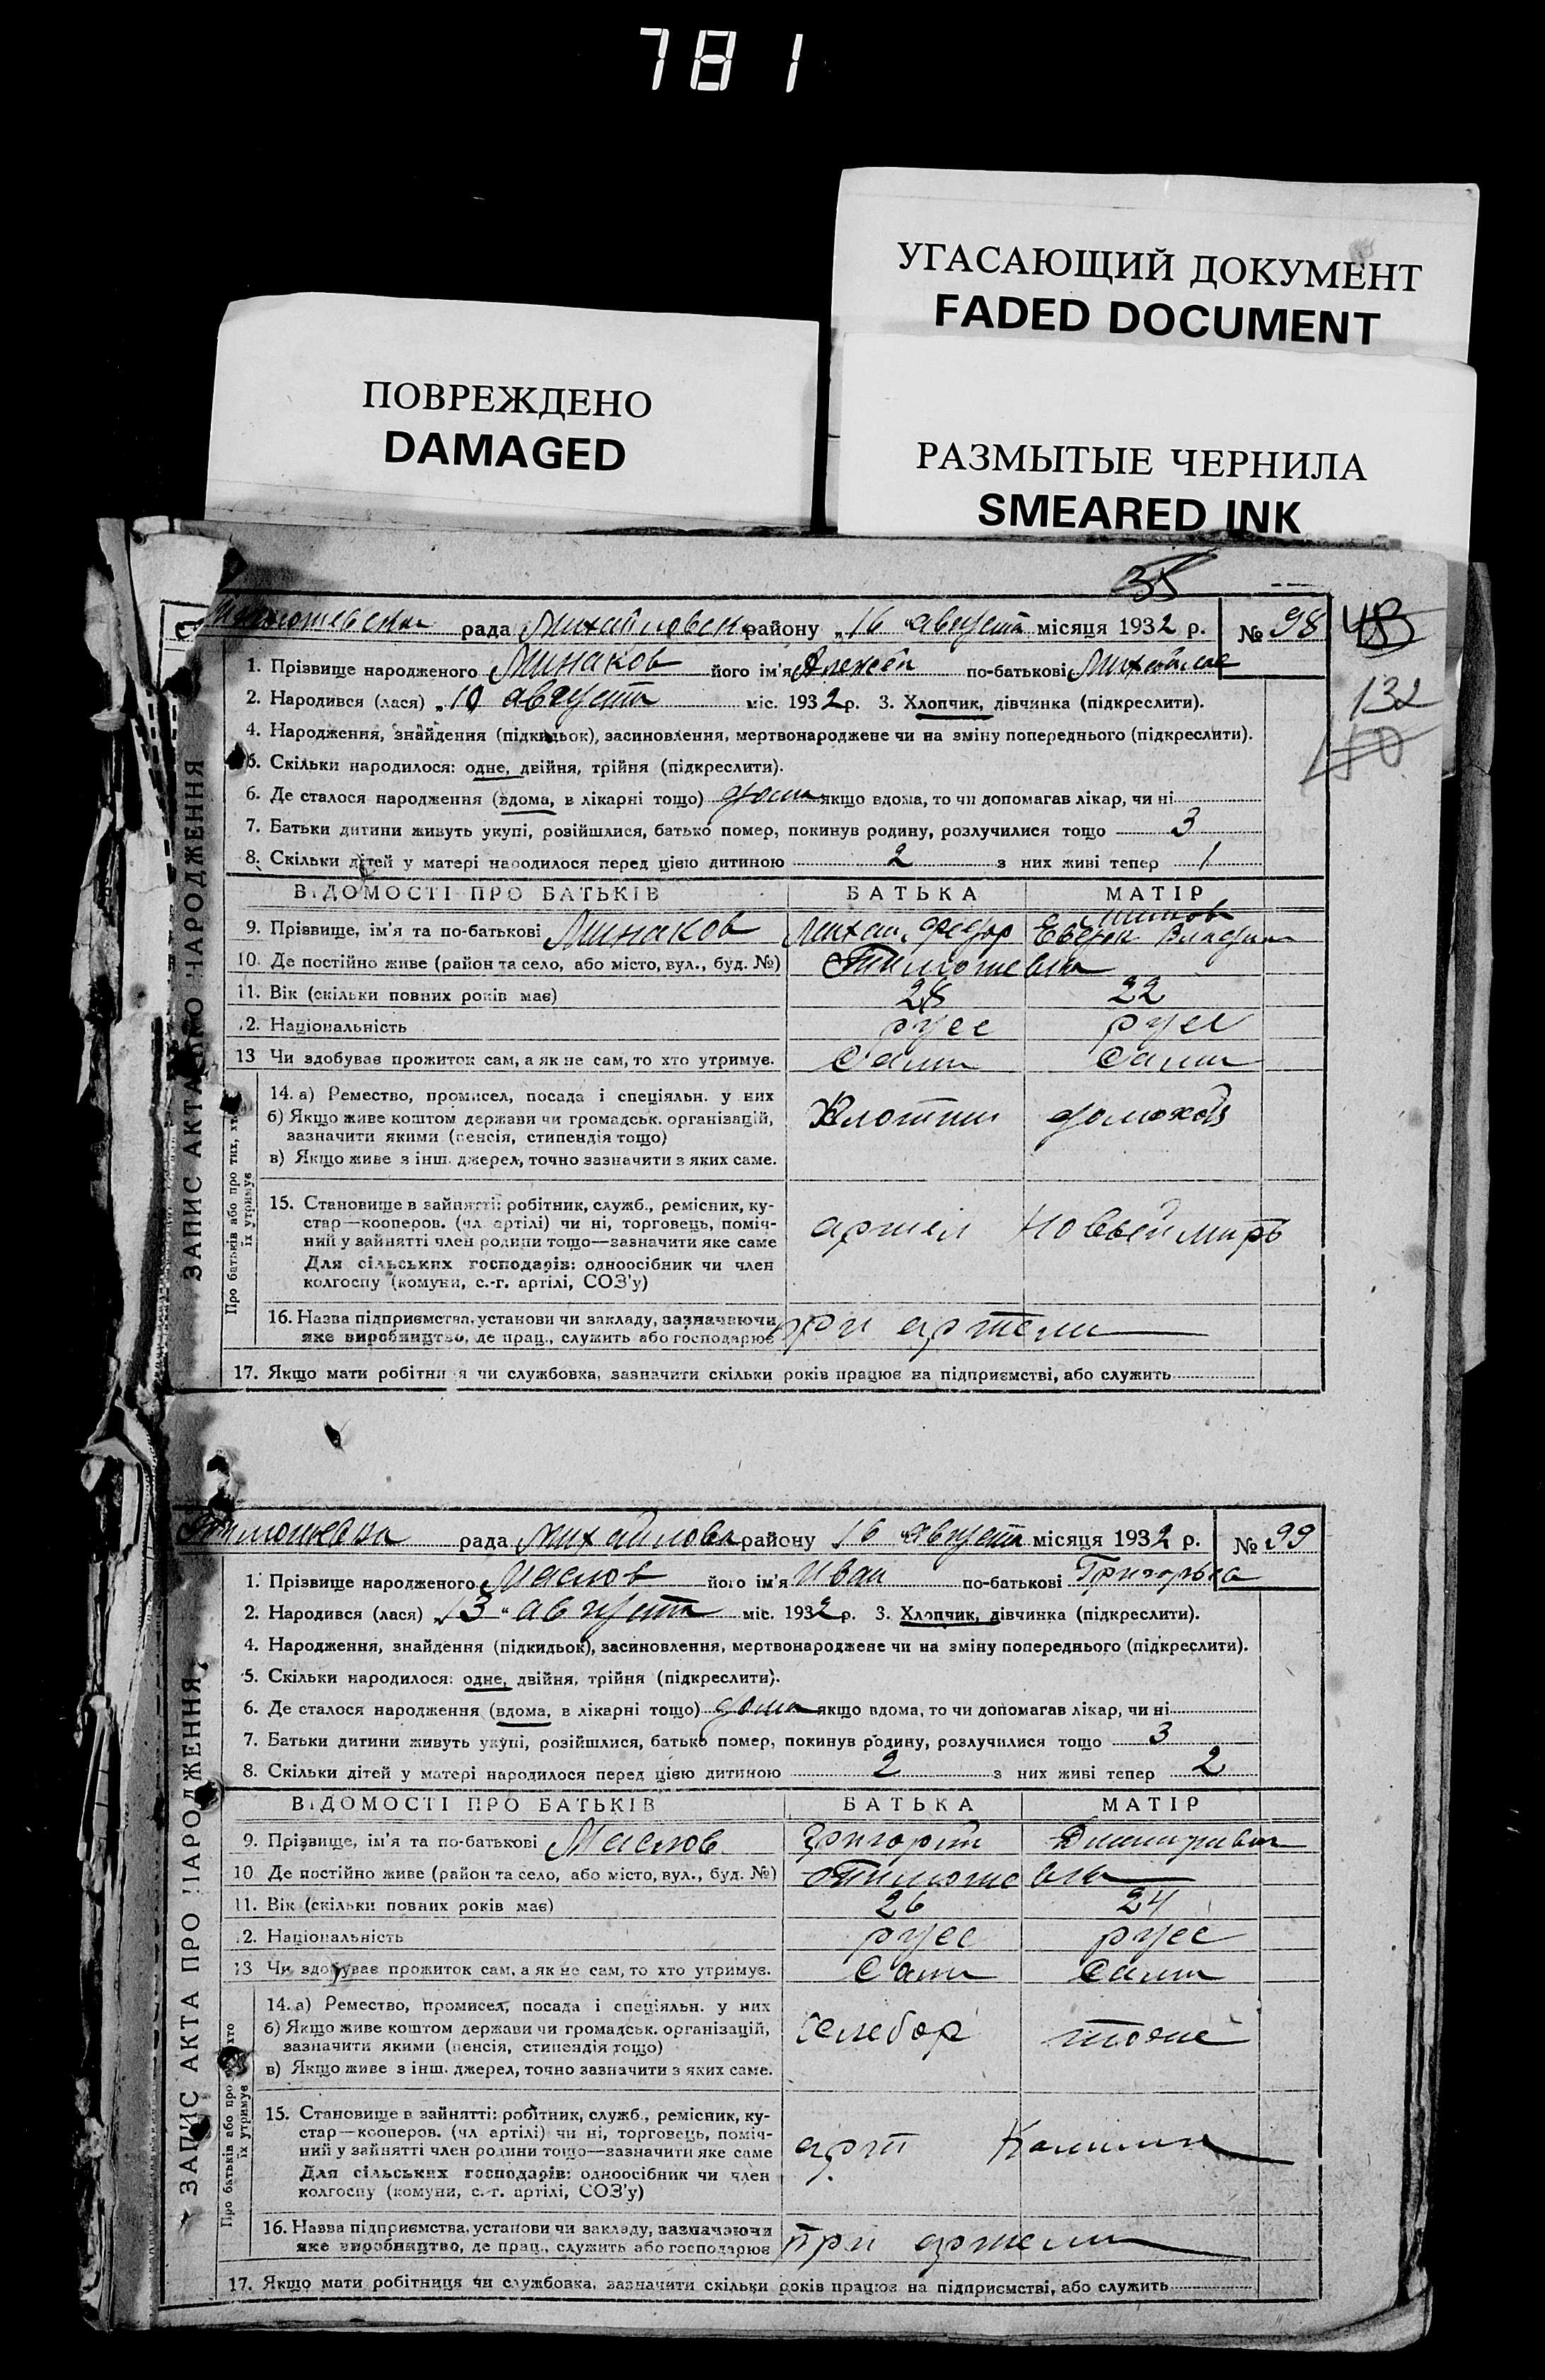 781
УГАСАЮЩИЙ ДОКУМЕНТ
FADED DOCUMENT
ПОВРЕЖДЕНО
DAMAGED
РАЗМЫТЫЕ ЧЕРНИЛА
SMEARED INK
35
рада Михайловск району „16 августа місяця 1932 р. № 98
48
132
ЗАПИС АКТА ПРО НАРОДЖЕННЯ
1. Прізвище народженого Минаков його ім'я Алексей по-батькові
2. Народився (лася) „10 августа міс. 1932 р. 3. Хлопчик, дівчинка (підкреслити).
4. Народження, знайдення (підкидьок), засиновлення, мертвонароджене чи на зміну попереднього (підкреслити).
5. Скільки народилося: одне, двійня, трійня (підкреслити).
6. Де сталося народження (вдома, в лікарні тощо) дома якщо вдома, то чи допомагав лікар, чи ні
7. Батьки дитини живуть укупі, розійшлися, батько помер, покинув родину, розлучилися тощо 3
8. Скільки дітей у матері народилося перед цією дитиною 2 з них живі тепер 1
ВІДОМОСТІ ПРО БАТЬКІВ БАТЬКА МАТІР
9. Прізвище, ім'я та по-батькові Минаков Михаи. Федор
10. Де постійно живе (район та село, або місто, вул., буд. №) Тимошевка
11. Вік (скільки повних років має) 28 22
12. Національність русс русс
13 Чи здобуває прожиток сам, а як не сам, то хто утримує. Сами Сами
Про батьків або про тих, хто їх утримує
14. а) Ремество, промисел, посада і спеціяльн. у них
б) Якщо живе коштом держави чи громадськ. організацій,
зазначити якими (пенсія, стипендія тощо)
в) Якщо живе з інш. джерел, точно зазначити з яких саме.
Плотник домохоз
15. Становище в зайнятті: робітник, служб., ремісник, ку-
стар—кооперов. (чл артілі) чи ні, торговець, поміч-
ний у зайнятті член родини тощо—зазначити яке саме
Для сільських господарів: одноосібник чи член
колгоспу (комуни, с.-г. артілі, СОЗ'у)
артел Новый миръ
16. Назва підприємства, установи чи закладу, зазначаючи
яке виробництво, де прац., служить або господарює
при артели
17. Якщо мати робітниця чи службовка, зазначити скільки років працює на підприємстві, або служить
Тимошевка рада Михайловка району 16 августа місяця 1932 р. № 99
ЗАПИС АКТА ПРО НАРОДЖЕННЯ
1. Прізвище народженого Маслов його ім'я Иван по-батькові
2. Народився (лася) „13 " августа міс. 1932 р. 3. Хлопчик, дівчинка (підкреслити).
4. Народження, знайдення (підкидьок), засиновлення, мертвонароджене чи на зміну попереднього (підкреслити).
5. Скільки народилося: одне, двійня, трійня (підкреслити).
6. Де сталося народження (вдома, в лікарні тощо) дома якщо вдома, то чи допомагав лікар, чи ні
7. Батьки дитини живуть укупі, розійшлися, батько помер, покинув родину, розлучилися тощо 3
8. Скільки дітей у матері народилося перед цією дитиною 2 з них живі тепер 2
ВІДОМОСТІ ПРО БАТЬКІВ БАТЬКА МАТІР
9. Прізвище, ім'я та по-батькові Маслов Григорий
10 Де постійно живе (район та село, або місто, вул., буд. №) Тимошевка
11. Вік (скільки повних років має) 26 24
12. Національність русс русс
13 Чи здобуває прожиток сам, а як не сам, то хто утримує. Сами Сами
Про батьків або про тих, хто їх утримує
14. а) Ремество, промисел, посада і спеціяльн. у них
б) Якщо живе коштом держави чи громадськ. організацій,
зазначити якими (пенсія, стипендія тощо)
в) Якщо живе з інш. джерел, точно зазначити з яких саме.
тоже
15. Становище в зайнятті: робітник, служб., ремісник, ку-
стар—кооперов. (чл артілі) чи ні, торговець, поміч-
ний у зайнятті член родини тощо—зазначити яке саме
Для сільських господарів: одноосібник чи член
колгоспу (комуни, с.-г. артілі, СОЗ'у)
арт
16. Назва підприємства, установи чи закладу, зазначаючи
яке виробництво, де прац., служить або господарює
при артели
17. Якщо мати робітниця чи службовка, зазначити скільки років працює на підприємстві, або служить